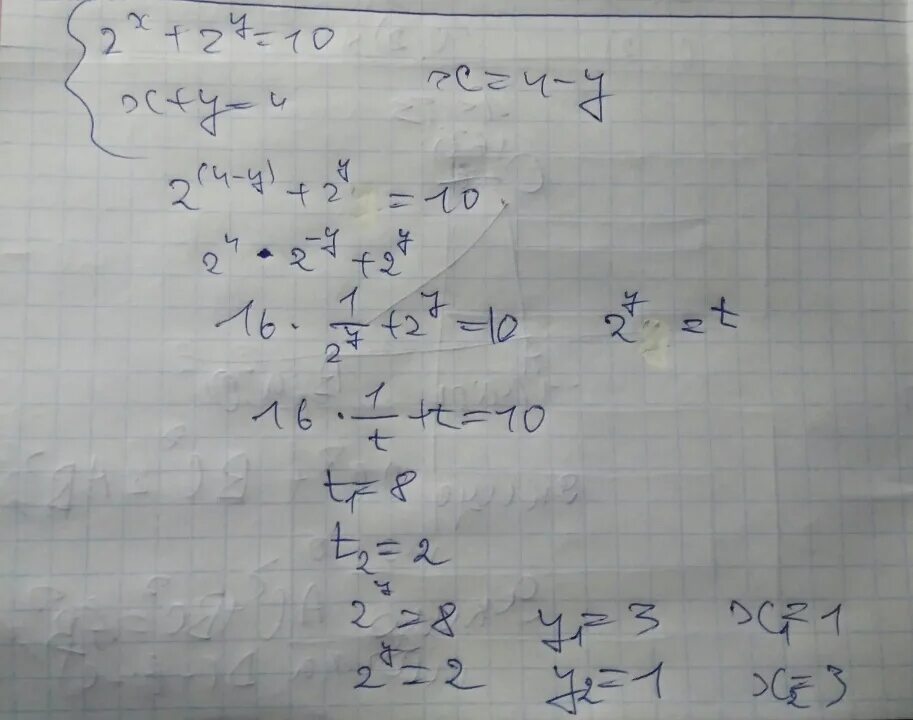 2^x + 2^y = 10
x + y = 4    x = 4 - y
2^(4-y) + 2^y = 10
2^4 · 2^-y + 2^y
16 · 1/2^y + 2^y = 10    2^y = t
16 · 1/t + t = 10
t₁ = 8
t₂ = 2
2^y = 8    y₁ = 3    x₁ = 1
2^y = 2    y₂ = 1    x₂ = 3